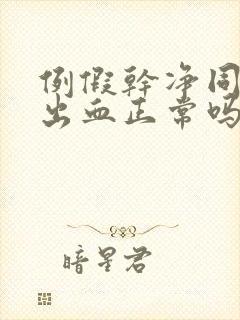 例假幹净同
出血正常吗
暗星君